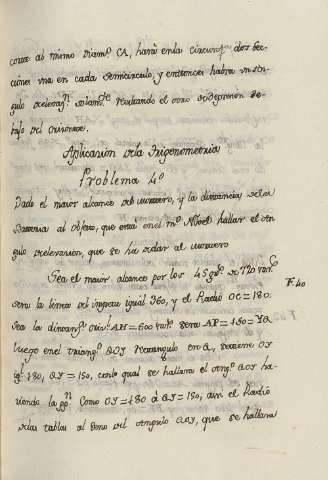 corta al mismo Diam.º CA, hará en la circunf.ª dos Sec-
ciones una en cada Semicirculo, y entonces habra un an-
gulo de elevaz.n solam.te resultando el otro de depresion de-
bajo del orizonte.
Aplicacion de la Trigonometria
Problema 4º
Dado el maior alcance del mortero, y la distancia de la
Bateria al objeto, que está en el m.º Nibel hallar el an-
gulo de elevacion, que se ha de dar al mortero
Sea el maior alcance por los 45 g.dos de 720 var.s
sera la linea del impetu igual 360, y el Radio OC = 180.
F. 40
Sea la distan.ª oriz.l AH = 600 var.s sera AP = 150 = YQ
luego en el triang.º QOY rectangulo en Q, se tiene OY
ig.l 180, QY = 150, con lo qual se hallara el ang.º QOY ha-
ciendo la pp.n Como OY = 180 á QY = 150, asi el Radio
de las tablas al Seno del angulo QOY, que se hallara